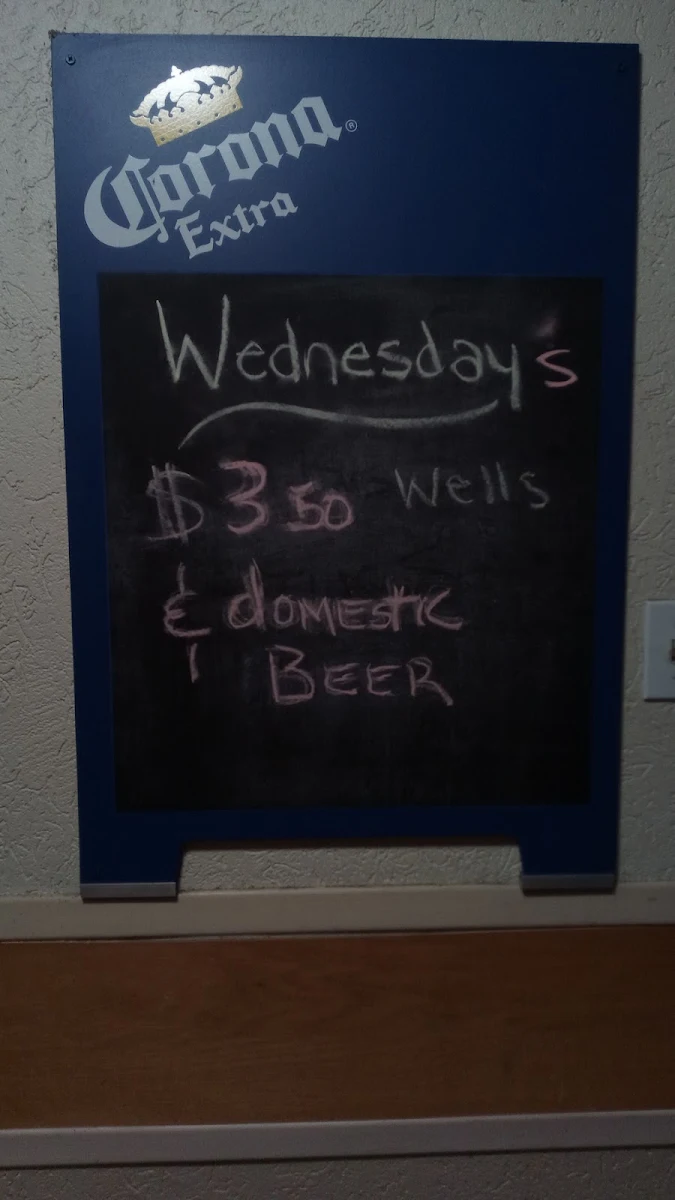 Corona®
Extra
Wednesdays
$3 50 Wells
& domestic
Beer